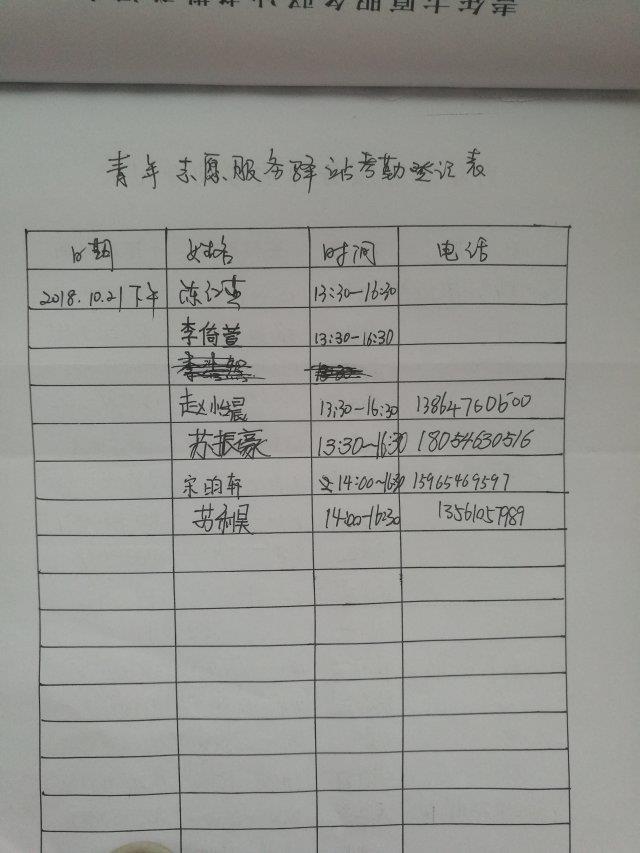 青年志愿服务驿站考勤登记表
日期 姓名 时间 电话
2018.10.21下午 陈红 13:30-16:30
李倚萱 13:30-16:30
赵怡晨 13:30-16:30 13864760600
苏振豪 13:30~16:30 18054630516
宋昀轩 14:00~1630 15965469597
苏利昊 14:00-16:30 13561057989